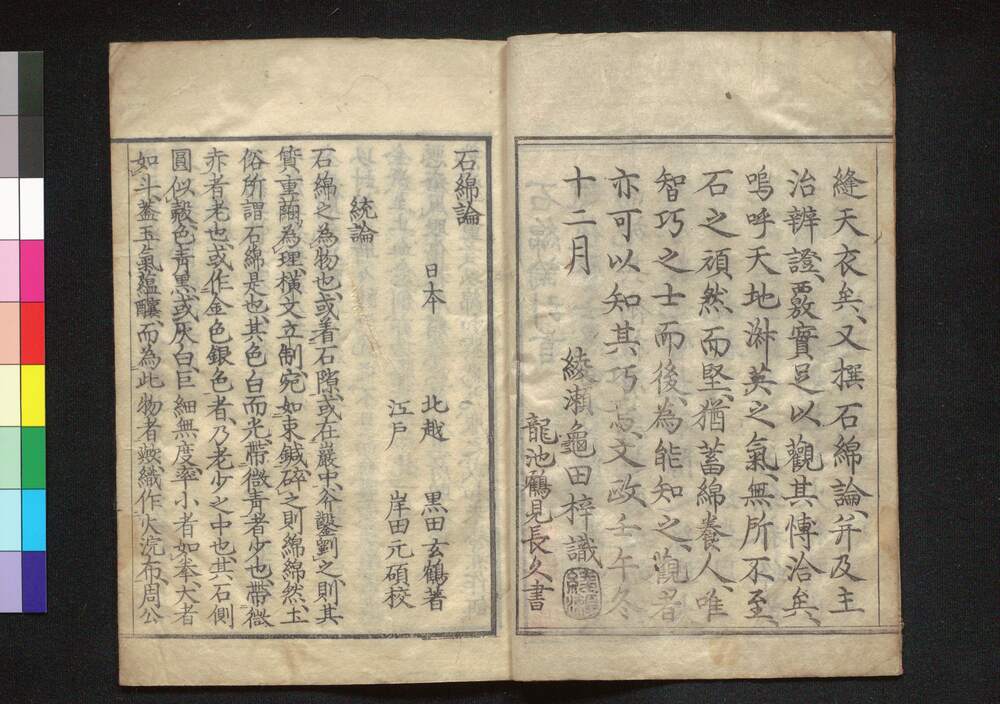 縫天衣矣、又撰石綿論、并及主
治辨證、覈實足以觀其愽洽矣、
嗚呼天地淋英之氣、無所不至、
石之頑然而堅、猶蓄綿養人、唯
智巧之士而後、為能知之、觀者
亦可以知其巧忘、文政壬午冬
十二月
綾瀬龜田梓識
龍池鶴見長久書
石綿論
日本 北越 黒田玄鶴著
江戸 岸田元碩校
統論
石綿之為物也、或着石隙、或在巖中、斧鑿劉之、則其
質重繭、為理横文立制、宛如束鍼、碎之則綿綿然、玉
俗所謂石綿是也、其色白而光、帶微青者少也、帶微
赤者老也、或作金色銀色者、乃老少之中也、其石側
圓似穀、色青黒、或灰白、巨細無度、率小者如拳、大者
如斗、蓋玉氣蘊釀、而為此物者歟、織作火浣布、周公